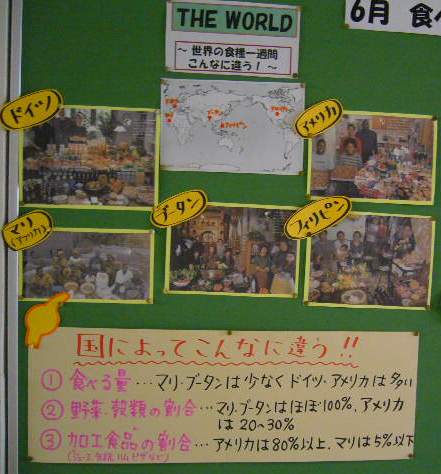 THE WORLD
～世界の食種一週間
こんなに違う！～
6月 食べ
ドイツ
アメリカ
ブータン
フィリピン
マリ
(アフリカ)
国によってこんなに違う!!
① 食べる量…マリ・ブータンは少なくドイツ・アメリカは多い
② 野菜・穀類の割合…マリ・ブータンはほぼ100%、アメリカ
は20～30%
③ 加工食品の割合…アメリカは80%以上、マリは5%以下